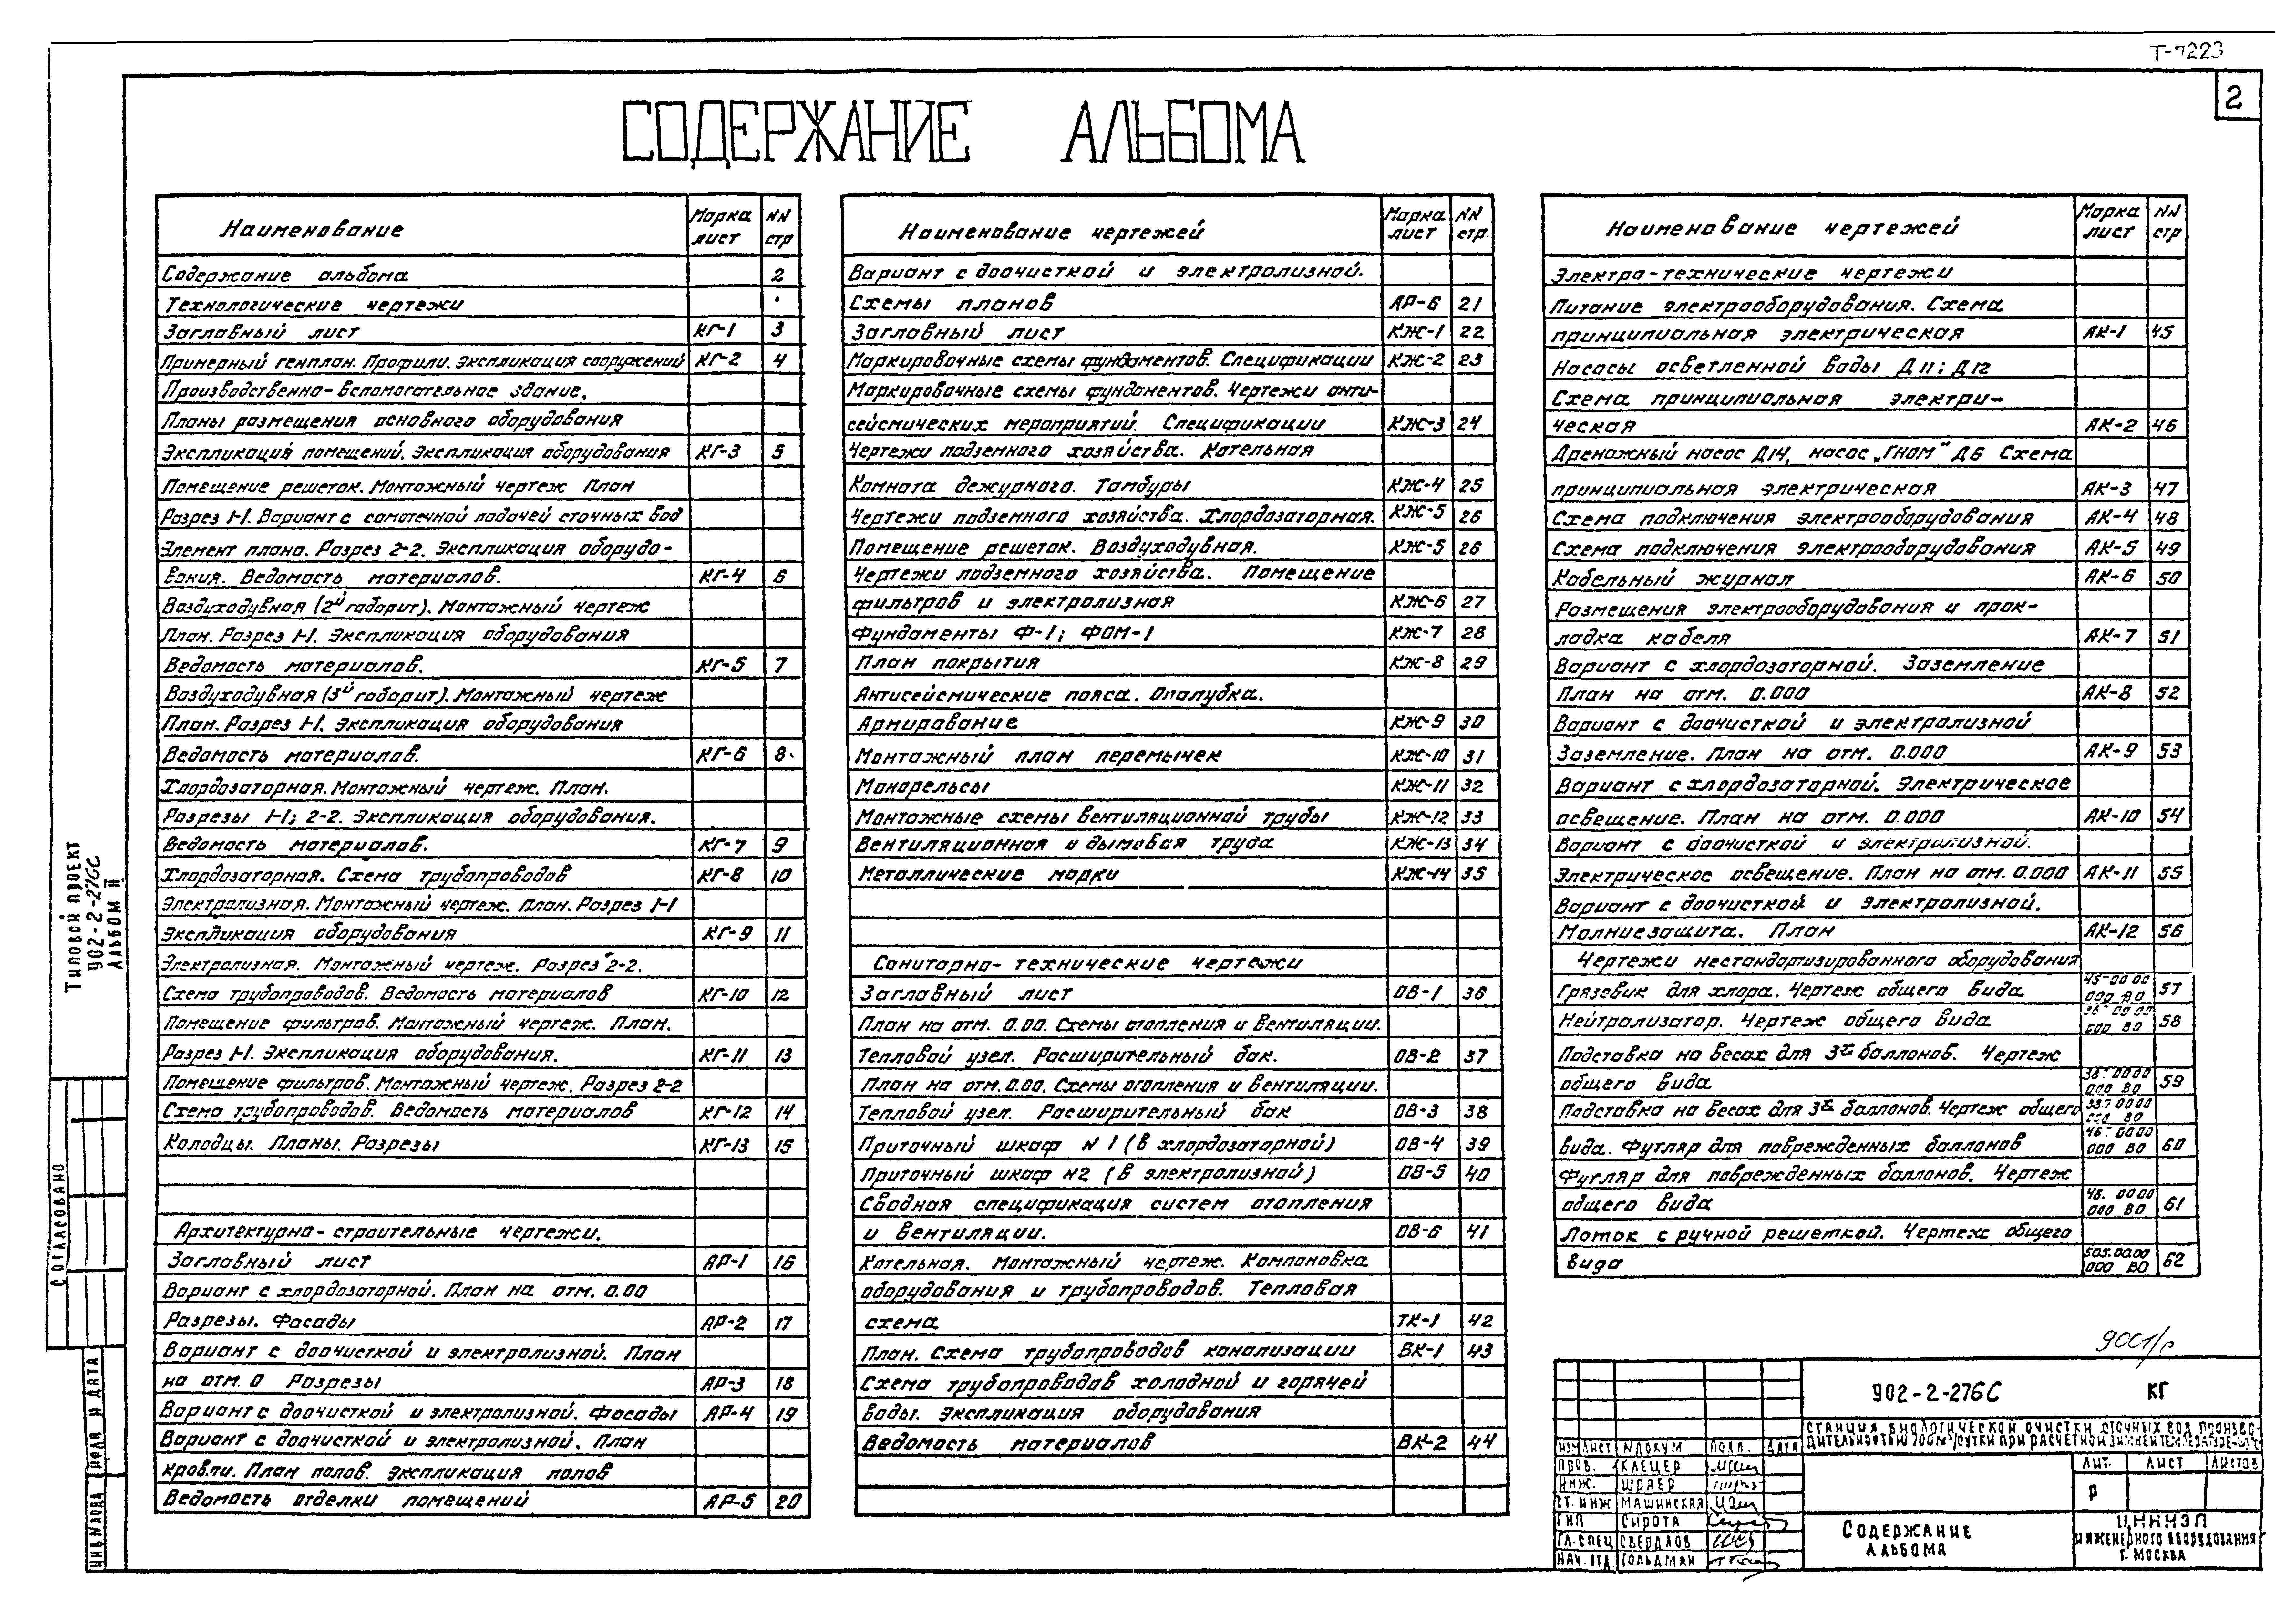 Т-7223
2
СОДЕРЖАНИЕ АЛЬБОМА
Наименование Марка лист NN стр
Содержание альбома 2
Технологические чертежи
Заглавный лист КГ-1 3
Примерный генплан. Профили. Экспликация сооружений КГ-2 4
Производственно-вспомогательное здание.
Планы размещения основного оборудования
Экспликация помещений. Экспликация оборудования КГ-3 5
Помещение решеток. Монтажный чертеж План
Разрез 1-1. Вариант с самотечной подачей сточных вод
Элемент плана. Разрез 2-2. Экспликация оборудо-
вания. Ведомость материалов. КГ-4 6
Воздуходувная (2й габарит). Монтажный чертеж
План. Разрез 1-1. Экспликация оборудования
Ведомость материалов. КГ-5 7
Воздуходувная (3й габарит). Монтажный чертеж
План. Разрез 1-1. Экспликация оборудования
Ведомость материалов. КГ-6 8
Хлордозаторная. Монтажный чертеж. План.
Разрезы 1-1; 2-2. Экспликация оборудования.
Ведомость материалов. КГ-7 9
Хлордозаторная. Схема трубопроводов КГ-8 10
Электролизная. Монтажный чертеж. План. Разрез 1-1
Экспликация оборудования КГ-9 11
Электролизная. Монтажный чертеж. Разрез 2-2.
Схема трубопроводов. Ведомость материалов КГ-10 12
Помещение фильтров. Монтажный чертеж. План.
Разрез 1-1. Экспликация оборудования. КГ-11 13
Помещение фильтров. Монтажный чертеж. Разрез 2-2
Схема трубопроводов. Ведомость материалов КГ-12 14
Колодцы. Планы. Разрезы КГ-13 15
Архитектурно-строительные чертежи.
Заглавный лист АР-1 16
Вариант с хлордозаторной. План на отм. 0.00
Разрезы. Фасады АР-2 17
Вариант с доочисткой и электролизной. План
на отм. 0 Разрезы АР-3 18
Вариант с доочисткой и электролизной. Фасады АР-4 19
Вариант с доочисткой и электролизной. План
кровли. План полов. Экспликация полов
Ведомость отделки помещений АР-5 20
Наименование чертежей Марка лист NN стр.
Вариант с доочисткой и электролизной.
Схемы планов АР-6 21
Заглавный лист КЖ-1 22
Маркировочные схемы фундаментов. Спецификации КЖ-2 23
Маркировочные схемы фундаментов. Чертежи анти-
сейсмических мероприятий. Спецификации КЖ-3 24
Чертежи подземного хозяйства. Котельная
Комната дежурного. Тамбуры КЖ-4 25
Чертежи подземного хозяйства. Хлордозаторная. КЖ-5 26
Помещение решеток. Воздуходувная. КЖ-5 26
Чертежи подземного хозяйства. Помещение
фильтров и электролизная КЖ-6 27
Фундаменты Ф-1; ФОМ-1 КЖ-7 28
План покрытия КЖ-8 29
Антисейсмические пояса. Опалубка.
Армирование КЖ-9 30
Монтажный план перемычек КЖ-10 31
Монорельсы КЖ-11 32
Монтажные схемы вентиляционной трубы КЖ-12 33
Вентиляционная и дымовая труба КЖ-13 34
Металлические марки КЖ-14 35
Санитарно-технические чертежи
Заглавный лист ОВ-1 36
План на отм. 0.00. Схемы отопления и вентиляции.
Тепловой узел. Расширительный бак. ОВ-2 37
План на отм. 0.00. Схемы отопления и вентиляции.
Тепловой узел. Расширительный бак ОВ-3 38
Приточный шкаф N1 (в хлордозаторной) ОВ-4 39
Приточный шкаф N2 (в электролизной) ОВ-5 40
Сводная спецификация систем отопления
и вентиляции. ОВ-6 41
Котельная. Монтажный чертеж. Компоновка
оборудования и трубопроводов. Тепловая
схема ТК-1 42
План. Схема трубопроводов канализации ВК-1 43
Схема трубопроводов холодной и горячей
воды. Экспликация оборудования
Ведомость материалов ВК-2 44
Наименование чертежей Марка лист NN стр
Электро-технические чертежи
Питание электрооборудования. Схема
принципиальная электрическая АК-1 45
Насосы осветленной воды Д11; Д12
Схема принципиальная электри-
ческая АК-2 46
Дренажный насос Д14, насос „Гном" Д6 Схема
принципиальная электрическая АК-3 47
Схема подключения электрооборудования АК-4 48
Схема подключения электрооборудования АК-5 49
Кабельный журнал АК-6 50
Размещения электрооборудования и прок-
ладка кабеля АК-7 51
Вариант с хлордозаторной. Заземление
План на отм. 0.000 АК-8 52
Вариант с доочисткой и электролизной
Заземление. План на отм. 0.000 АК-9 53
Вариант с хлордозаторной. Электрическое
освещение. План на отм. 0.000 АК-10 54
Вариант с доочисткой и электролизной.
Электрическое освещение. План на отм. 0.000 АК-11 55
Вариант с доочисткой и электролизной.
Молниезащита. План АК-12 56
Чертежи нестандартизированного оборудования
Грязевик для хлора. Чертеж общего вида 000 ВО 57
Нейтрализатор. Чертеж общего вида 000 ВО 58
Подставка на весах для 3х баллонов. Чертеж
общего вида 000 ВО 59
Подставка на весах для 3х баллонов. Чертеж общего
вида. Футляр для поврежденных баллонов 000 ВО 60
Футляр для поврежденных баллонов. Чертеж
общего вида 48. 00 00 000 ВО 61
Лоток с ручной решеткой. Чертеж общего
вида 505.00.00 000 ВО 62
ТИПОВОЙ ПРОЕКТ
902-2-276С
АЛЬБОМ II
СОГЛАСОВАНО
902-2-276С КГ
СТАНЦИЯ БИОЛОГИЧЕСКОЙ ОЧИСТКИ СТОЧНЫХ ВОД ПРОИЗВО-
ДИТЕЛЬНОСТЬЮ 700 м³/СУТКИ ПРИ РАСЧЕТНОЙ ЗИМНЕЙ
ИЗМ ЛИСТ N ДОКУМ ПОДП. ДАТА
ПРОВ. КЛЕЦЕР
ИНЖ. ШРАЕР
СТ. ИНЖ МАШИНСКАЯ
ГИП СИРОТА
ГЛ. СПЕЦ СВЕРДЛОВ
НАЧ. ОТД ГОЛЬДМАН
ЛИТ. ЛИСТ ЛИСТОВ
Р
СОДЕРЖАНИЕ
АЛЬБОМА
ЦНИИЭП
ИНЖЕНЕРНОГО ОБОРУДОВАНИЯ
Г. МОСКВА